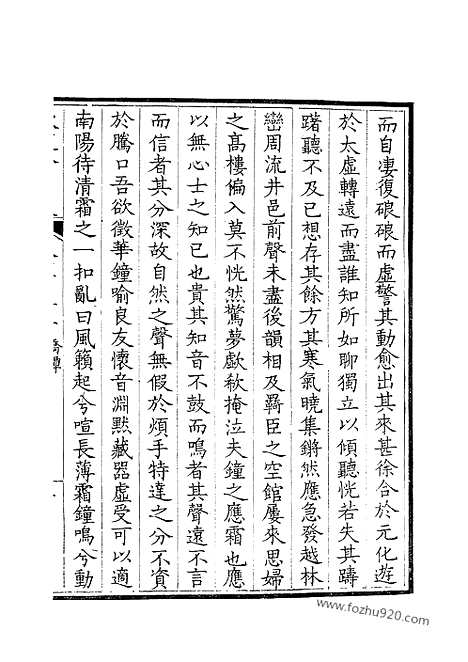 而自凄復硠硠而虛警其動愈出其來甚徐合於元化遊
於太虛轉遠而盡誰知所如聊獨立以傾聽恍若失其躊
躇聽不及已想存其餘方其寒氣曉集鏘然應急發越林
巒周流井邑前聲未盡後韻相及羇臣之空館屢來思婦
之髙樓偏入莫不恍然驚夢歔欷掩泣夫鐘之應霜也應
以無心士之知已也貴其知音不鼓而鳴者其聲遠不言
而信者其分深故自然之聲無假於煩手特達之分不資
於騰口吾欲徵華鐘喻良友懷音淵黙藏器虛受可以適
南陽待清霜之一扣亂曰風籟起兮喧長薄霜鐘鳴兮動
www.fozhu920.com